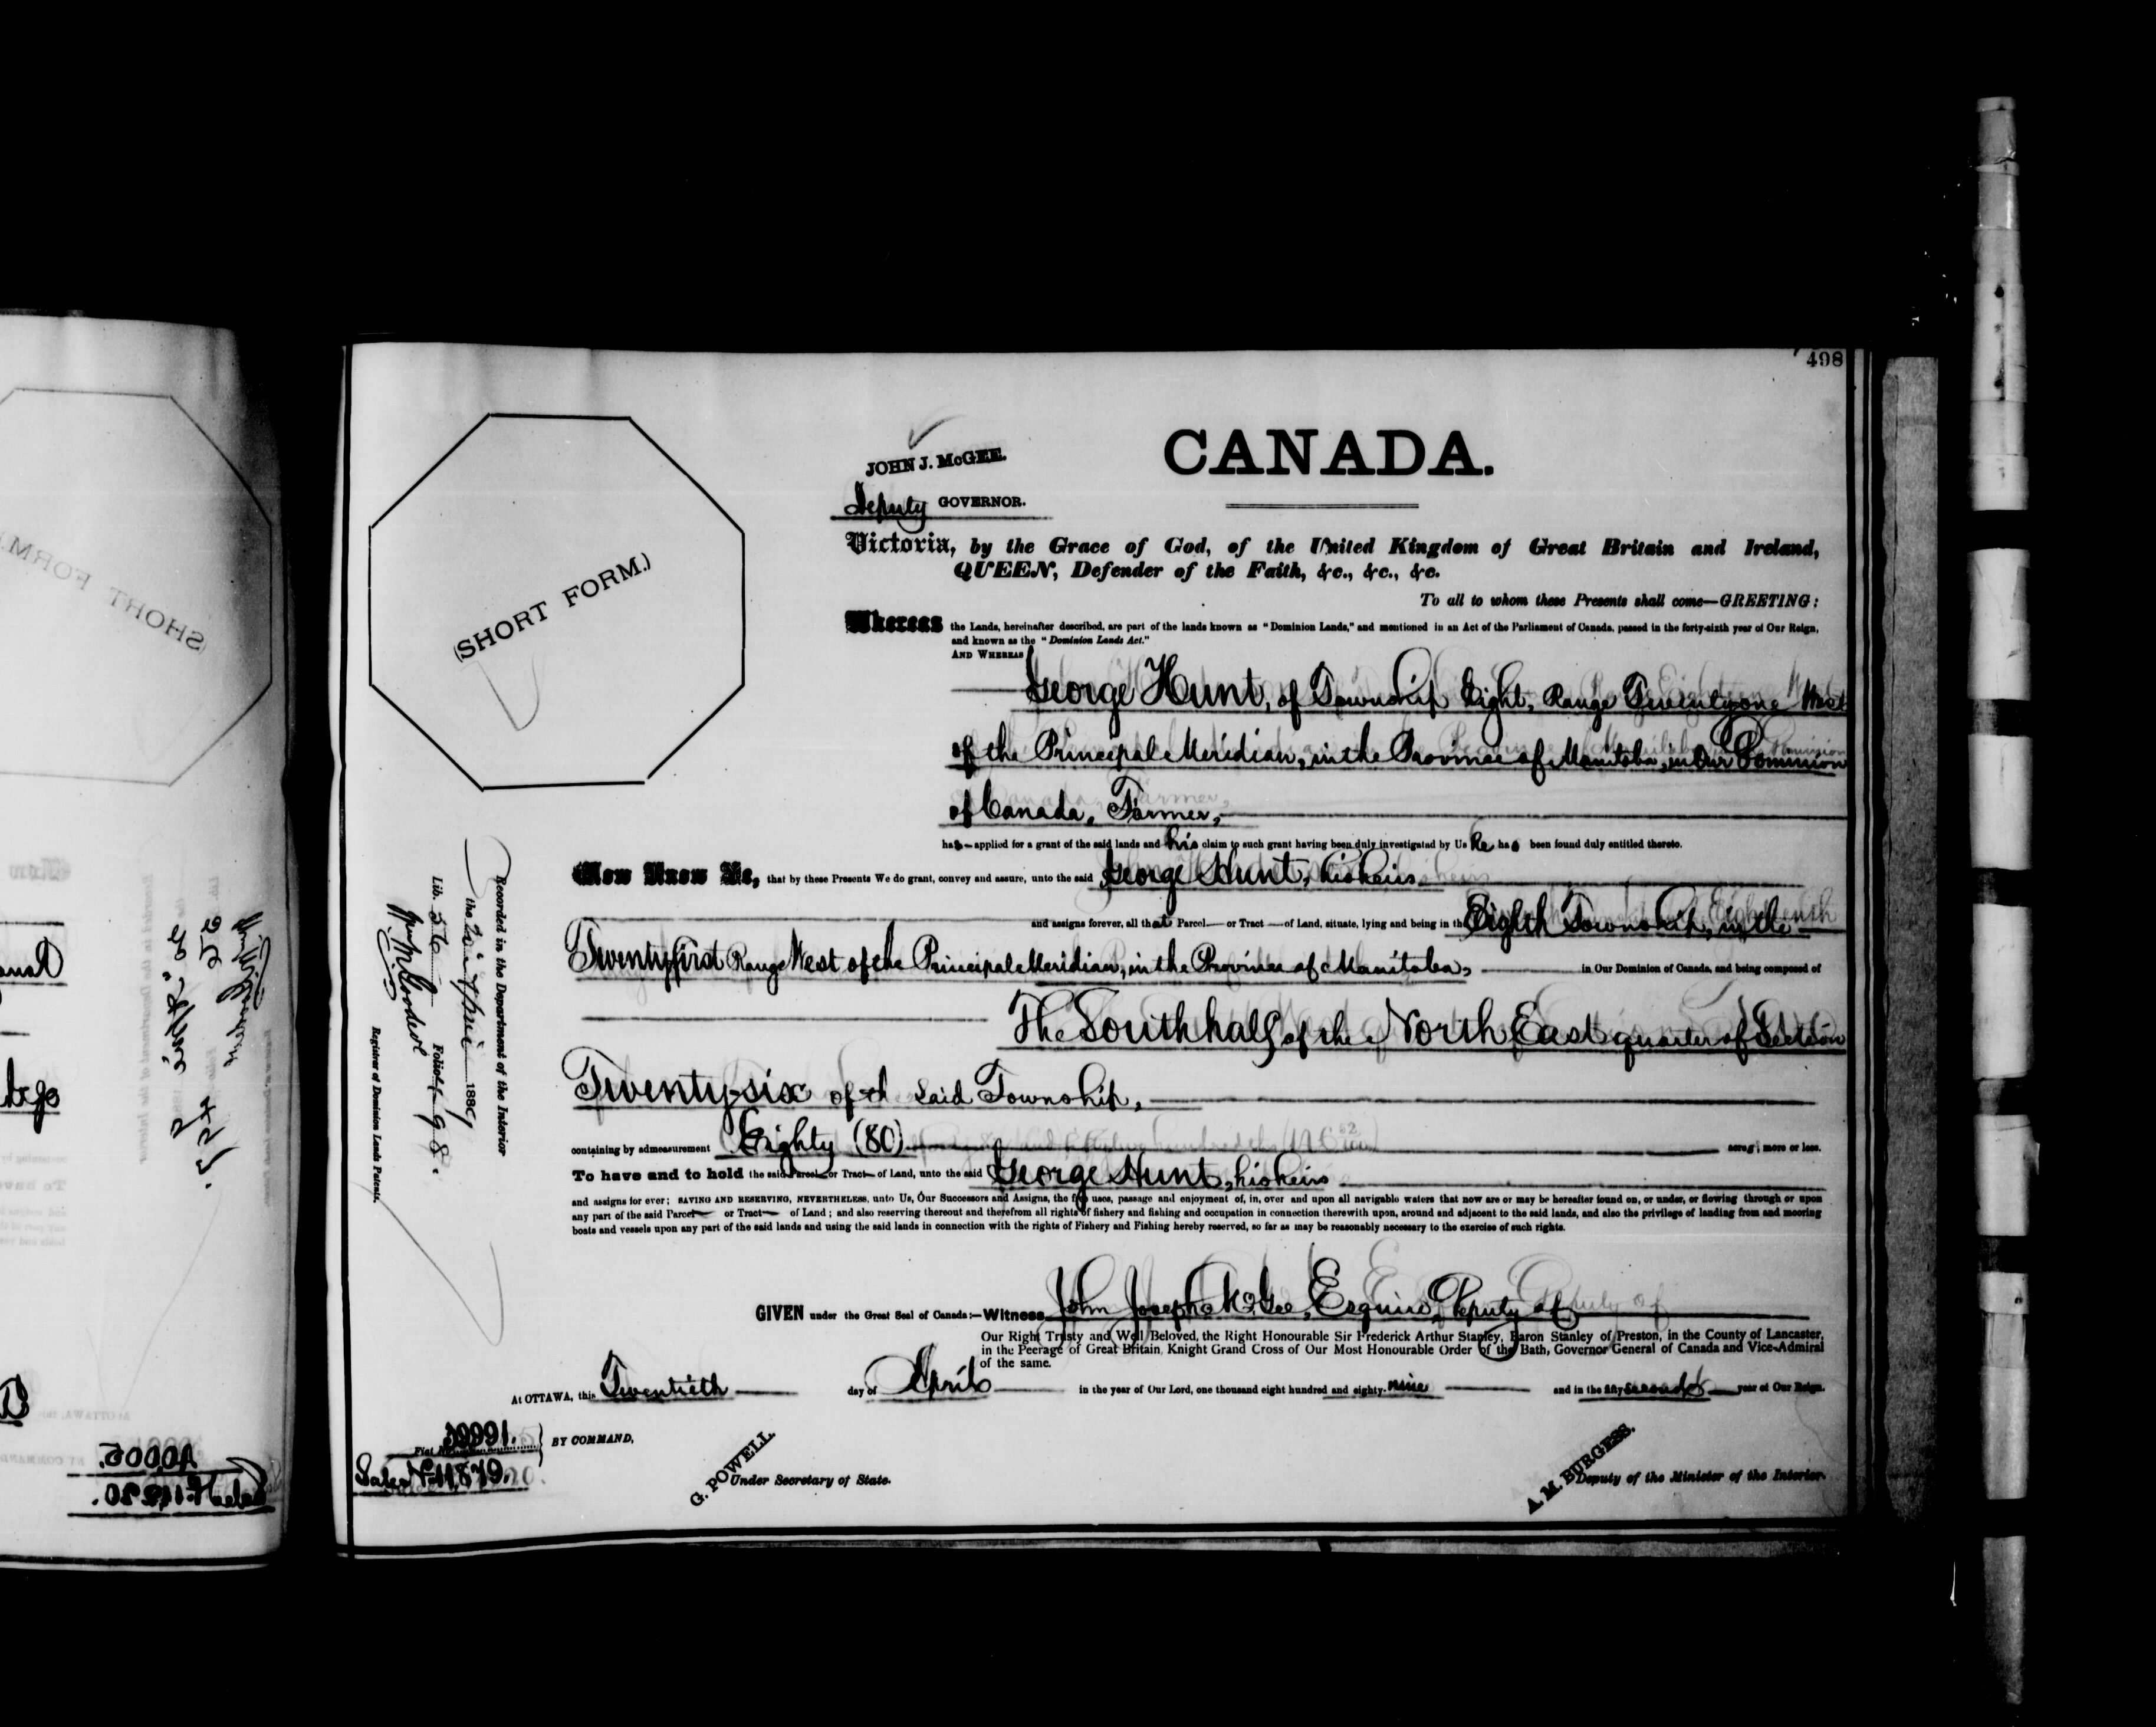 498
CANADA.
JOHN J. McGEE.
Deputy GOVERNOR.
(SHORT FORM.)
Victoria, by the Grace of God, of the United Kingdom of Great Britain and Ireland,
QUEEN, Defender of the Faith, &c., &c., &c.
To all to whom these Presents shall come—GREETING:
Whereas the Lands, hereinafter described, are part of the lands known as "Dominion Lands," and mentioned in an Act of the Parliament of Canada, passed in the forty-sixth year of Our Reign,
and known as the "Dominion Lands Act."
AND WHEREAS
George Hunt, of Township Eight, Range Twenty-one West
of the Principal Meridian, in the Province of Manitoba, in Our Dominion
of Canada, Farmer,
has applied for a grant of the said lands and his claim to such grant having been duly investigated by Us he has been found duly entitled thereto.
Now Know Ye, that by these Presents We do grant, convey and assure, unto the said George Hunt, his heirs
and assigns forever, all that Parcel or Tract of Land, situate, lying and being in the Eighth Township, in the
Twenty-first Range West of the Principal Meridian, in the Province of Manitoba, in Our Dominion of Canada, and being composed of
The South half of the North East quarter of Section
Twenty-six of the said Township,
containing by admeasurement Eighty (80) acres, more or less.
To have and to hold the said Parcel or Tract of Land, unto the said George Hunt, his heirs
and assigns for ever; SAVING AND RESERVING, NEVERTHELESS, unto Us, Our Successors and Assigns, the free uses, passage and enjoyment of, in, over and upon all navigable waters that now are or may be hereafter found on, or under, or flowing through or upon
any part of the said Parcel or Tract of Land; and also reserving thereout and therefrom all rights of fishery and fishing and occupation in connection therewith upon, around and adjacent to the said lands, and also the privilege of landing from and mooring
boats and vessels upon any part of the said lands and using the said lands in connection with the rights of Fishery and Fishing hereby reserved, so far as may be reasonably necessary to the exercise of such rights.
GIVEN under the Great Seal of Canada:—Witness John Joseph McGee, Esquire, Deputy of
Our Right Trusty and Well Beloved, the Right Honourable Sir Frederick Arthur Stanley, Baron Stanley of Preston, in the County of Lancaster,
in the Peerage of Great Britain, Knight Grand Cross of Our Most Honourable Order of the Bath, Governor General of Canada and Vice-Admiral
of the same.
At OTTAWA, this Twentieth day of April in the year of Our Lord, one thousand eight hundred and eighty-nine and in the fifty-second year of Our Reign.
39991.
BY COMMAND,
Sales No 11879.
G. POWELL
Under Secretary of State.
A. M. BURGESS.
Deputy of the Minister of the Interior.
Recorded in the Department of the Interior
the April 1889
Lib. 56 Folio 498.
Registrar of Dominion Lands Patents.